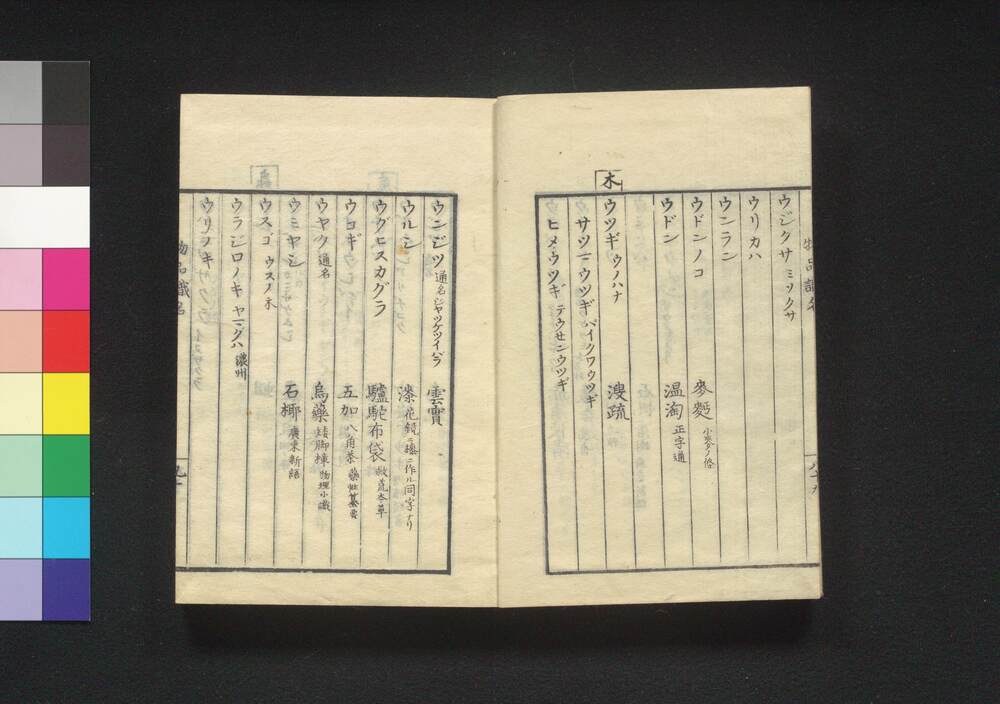 物品識名
ウジクサ ミソクサ
ウリカハ
ウンラン
ウドンノコ 麥麪
ウドン 温淘 正字通
木
ウツギ ウノハナ 溲疏
サツマウツギ バイクワウツギ
ヒメウツギ テウセンウツギ
ウンジツ 通名 ジヤケツイバラ 雲實
ウルシ 漆 花鏡ニ桼ニ作ル同字ナリ
ウグヒスカグラ 驢駝布袋 救荒本草
ウコギ 五加 八角茶 藥性纂要
ウヤク 通名 烏藥 矮脚樟 物理小識
ウミヤシ 石椰 廣東新語
ウスゴ ウスノ木
ウラジロノキ ヤマグハ 濃州
ウリノキ
物品識名